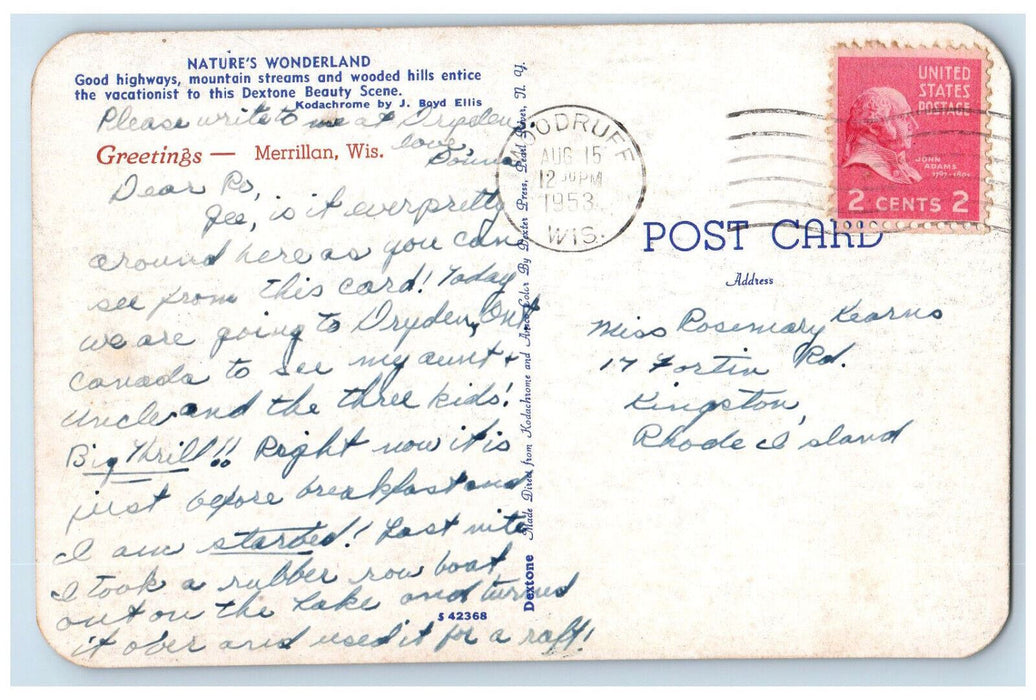 NATURE'S WONDERLAND
Good highways, mountain streams and wooded hills entice
the vacationist to this Dextone Beauty Scene.
Kodachrome by J. Boyd Ellis
Please write to me at Dryden.
love,
Donna
Greetings — Merrillan, Wis.
Dear Ro,
Gee, is it ever pretty
around here as you can
see from this card! Today
we are going to Dryden, Ont
Canada to see my aunt +
uncle and the three kids!
Big Thrill!! Right now it is
just before breakfast and
I am starved! Last nite
I took a rubber row boat
out on the lake and turned
it over and used it for a raft!
S 42368
Dextone Made Direct from Kodachrome and Ansco Color By Dexter Press, Pearl River, N. Y.
WOODRUFF
AUG 15
12 30 PM
1953
WIS.
UNITED
STATES
POSTAGE
JOHN
ADAMS
1797-1801
2 CENTS 2
POST CARD
Address
Miss Rosemary Kearns
17 Fortin Rd.
Kingston,
Rhode Island